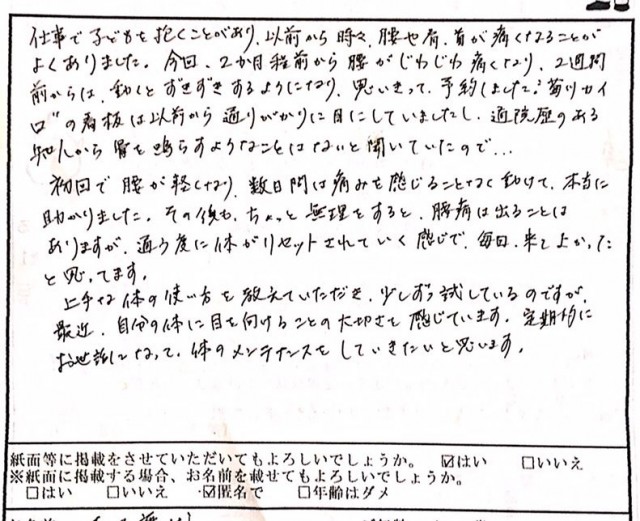 仕事で子どもを抱くことがあり、以前から時々、腰や肩、首が痛くなることが
よくありました。今回、2か月程前から腰がじわじわ痛くなり、2週間
前からは、動くとずきずきするようになり、思いきって、予約しました。"菊川カイ
ロ"の看板は以前から通りがかりに目にしていましたし、通院歴のある
知人から骨を鳴らすようなことはないと聞いていたので…
初回で腰が軽くなり、数日間は痛みを感じることなく動けて、本当に
助かりました。その後も、ちょっと無理をすると、腰痛は出ることは
ありますが、通う度に体がリセットされていく感じで、毎回、来て よかった
と思ってます。
上手な体の使い方を教えていただき、少しずつ試しているのですが、
最近、自分の体に目を向けることの大切さを感じています。定期的に
お世話になって、体のメンテナンスをしていきたいと思います。
紙面等に掲載をさせていただいてもよろしいでしょうか。 ☑はい □いいえ
※紙面に掲載する場合、お名前を載せてもよろしいでしょうか。
□はい □いいえ ☑匿名で □年齢はダメ